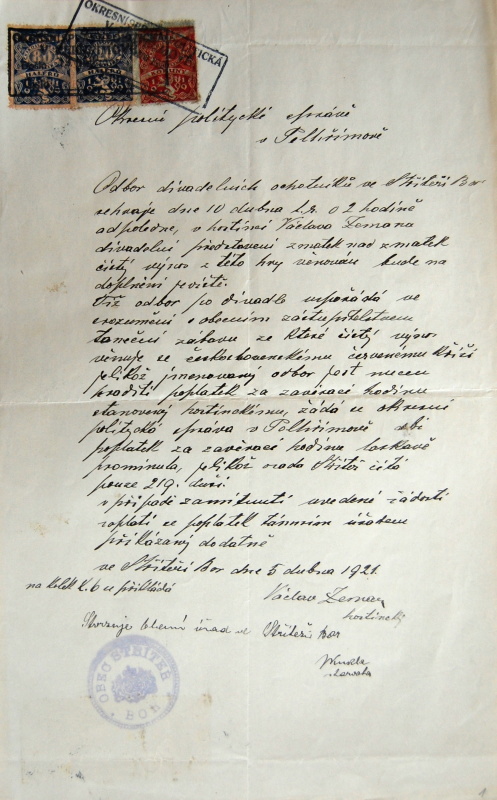 OKRESNÍ POLITICKÁ
80
HALÉŘŮ
20
KORUNY
Okresní politycké správě
v Pelhřimově
Odbor divadelních ochotníků ve Střiteři Bor
sehraje dne 10 dubna t.r. o 2 hodině
odpoledne, v hostinci Václava Zemana
divadelní představení zmatek nad zmatek
čistý výnos z této hry věnován bude na
doplnění jeviště.
Týž odbor po divadle uspořádá ve
srozumění s obecním zástupitelstvem
taneční zábavu ze které čistý výnos
věnuje se československému červenému kříži
jelikož jmenovaný odbor jest nucen
hraditi poplatek za zavírací hodinu
stanovený hostinskému, žádá se okresní
politycká správa v Pelhřimově aby
poplatek za zavírací hodinu laskavě
prominula, jelikož osada Střiteř čítá
pouze 219 duší
v případě zamítnutí uvedené žádosti
zaplatí se poplatek úřadem
přikázaný dodatně
ve Střiteři Bor dne 5 dubna 1921.
na kolek k. 6 u přikládá
Václav Zeman
hostinský
Stvrzuje Obecní úřad ve Střiteři Bor
starosta
OBEC STŘITEŘ
BOR